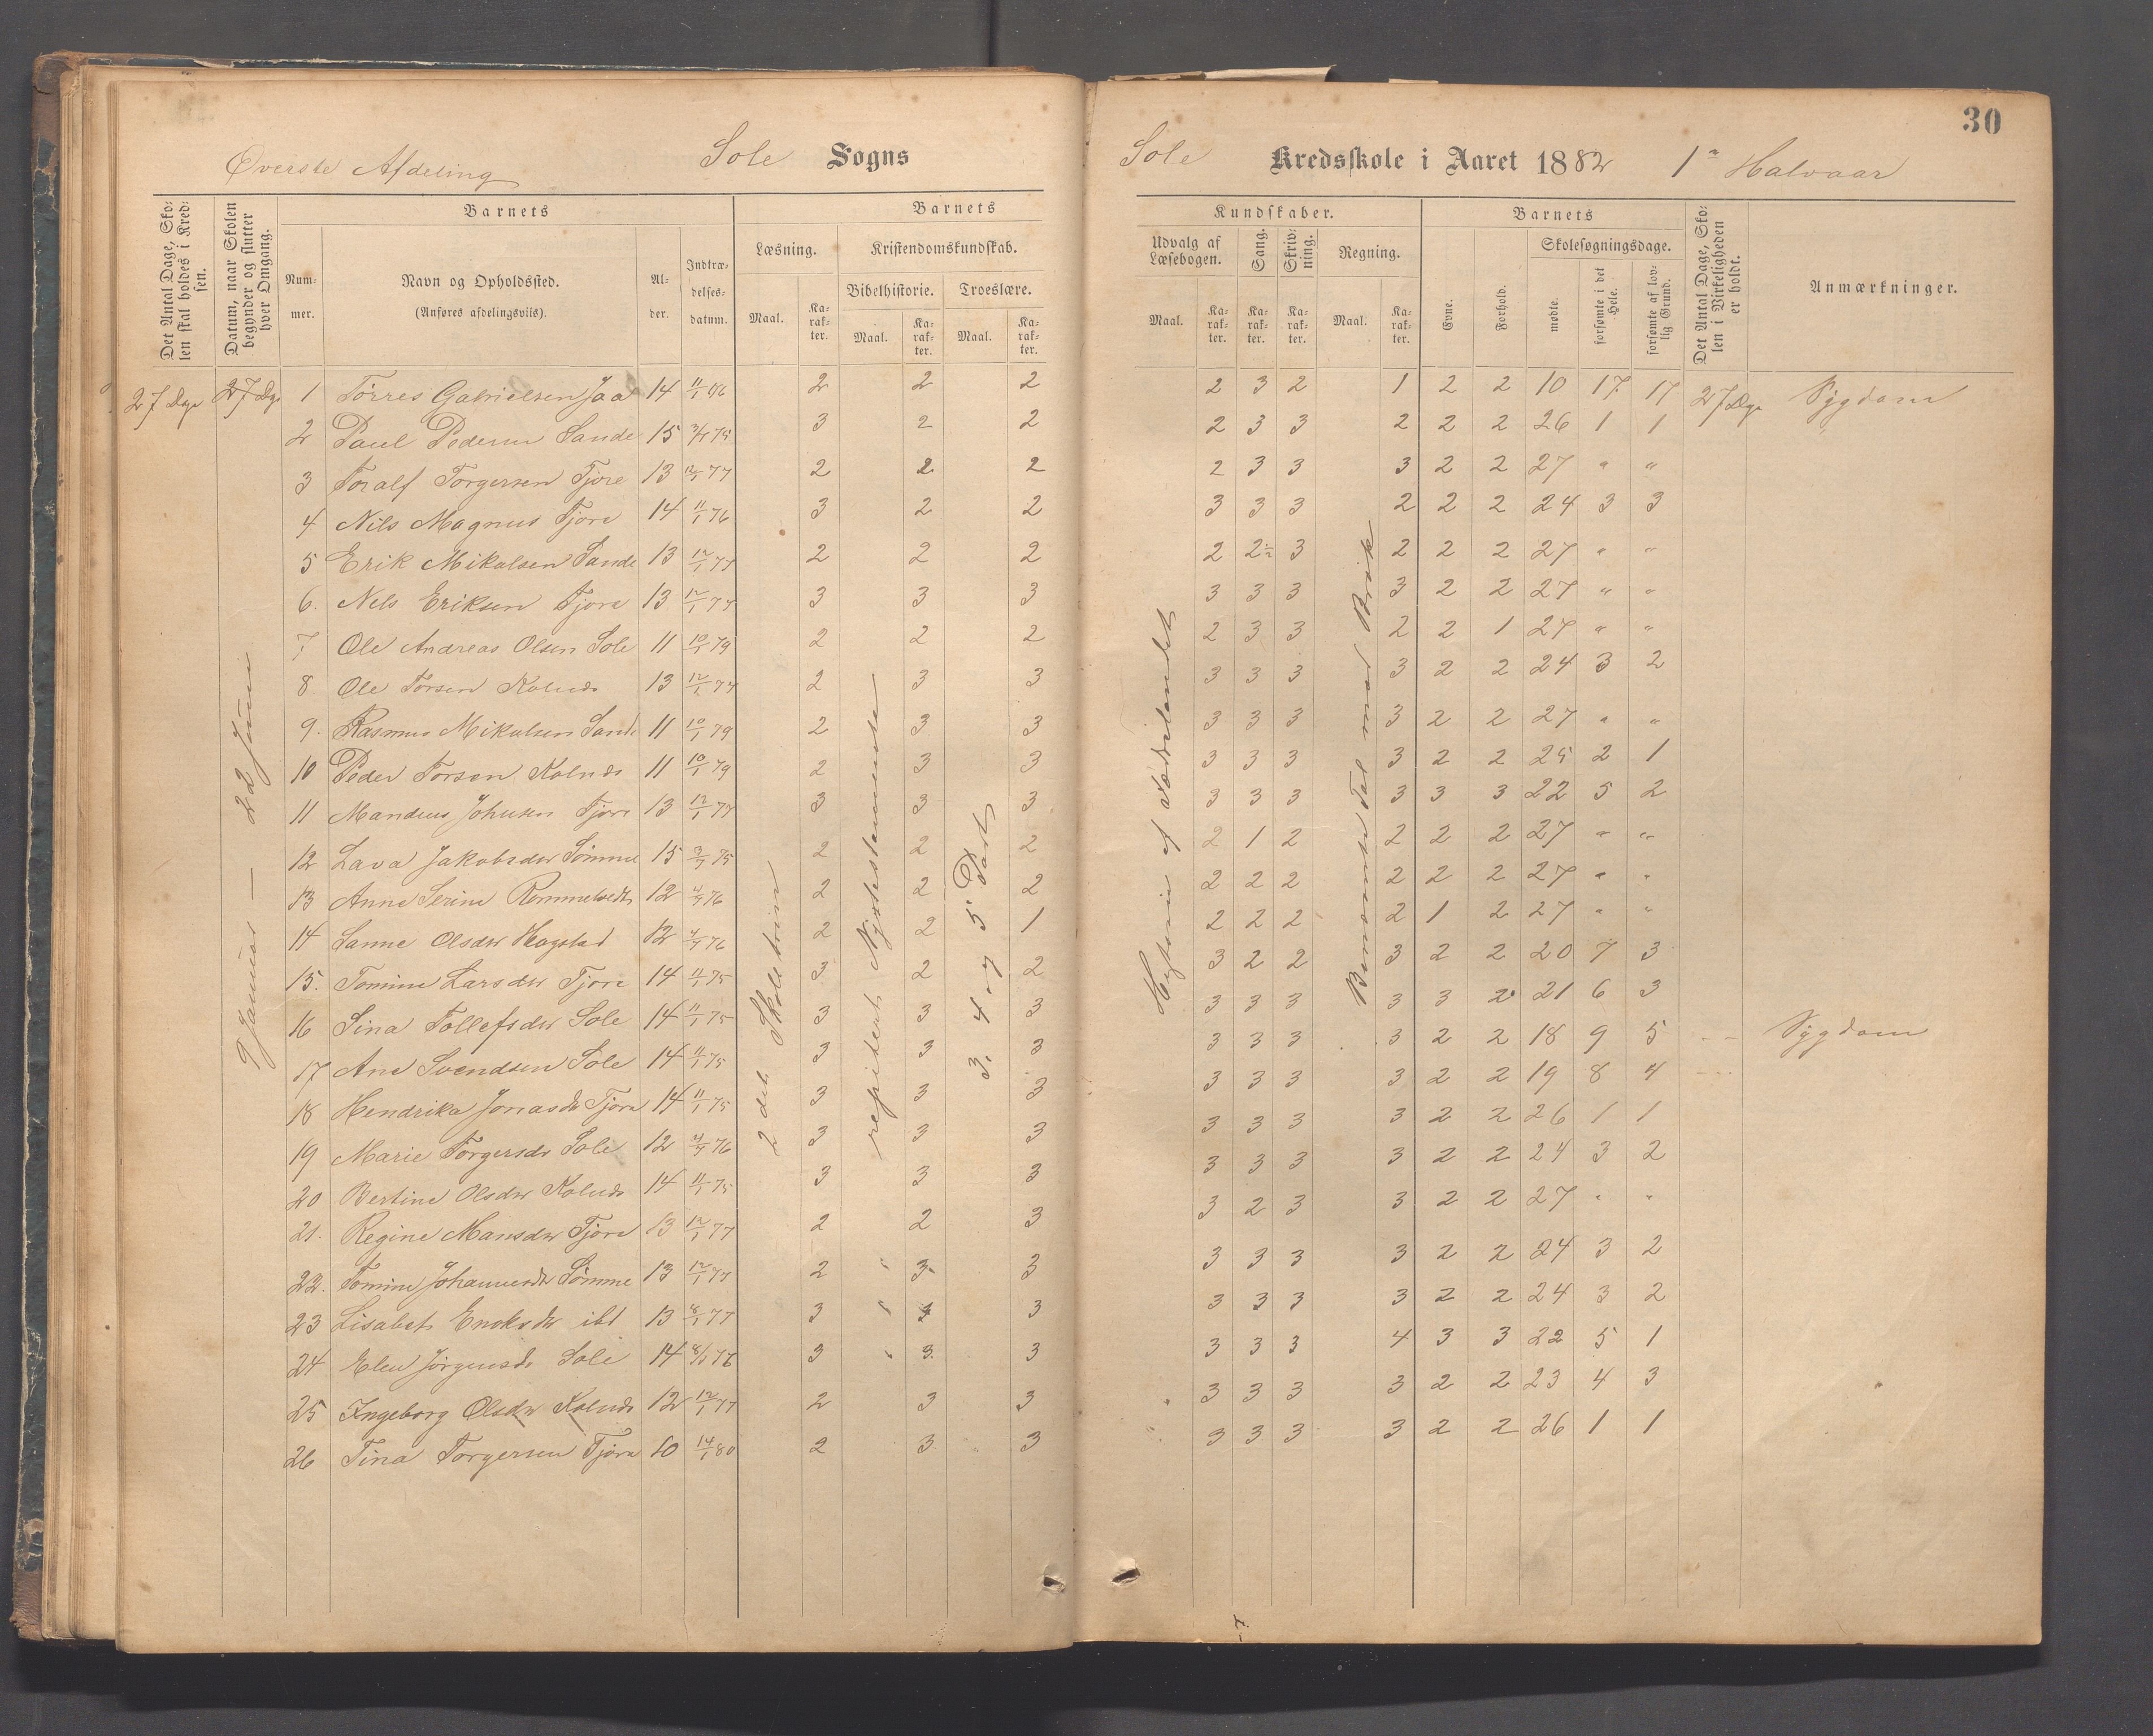 30
Øverste Afdeling Sole Sogns
Sole Kredsskole i Aaret 1882 1ste Halvaar
Det Antal Dage, Skolen skal holdes i Kredsen.
Datum, naar Skolen begynder og slutter hver Omgang.
Barnets
Nummer.
Navn og Opholdssted.
(Anføres afdelingsviis).
Alder.
Indtrædelsesdatum.
Barnets
Læsning.
Maal.
Karakter.
Kristendomskundskab.
Bibelhistorie.
Maal.
Karakter.
Troeslære.
Maal.
Karakter.
Kundskaber.
Udvalg af Læsebogen.
Maal.
Karakter.
Sang.
Karakter.
Skrivning.
Karakter.
Regning.
Maal.
Karakter.
Barnets
Evne.
Forhold.
Skolesøgningsdage.
møde.
forsømte i det Hele.
forsømte af lovlig Grund.
Det Antal Dage, Skolen i Virkeligheden er holdt.
Anmærkninger.
27 Dage 27 Dge 1 Tørres Gabrielsen Jaa 14 11/1 76 2 2 2 2 3 2 1 2 2 10 17 17 27 Dge Sygdom
2 Paul Pedersen Sande 15 75 3 2 2 2 3 3 2 2 2 26 1 1
3 Toralf Torgersen Tjore 13 12/1 77 2 2 2 2 3 3 3 2 2 27 " "
4 Nils Magnus Tjore 14 11/1 76 3 2 2 3 3 3 2 2 2 24 3 3
5 Erik Mikalsen Sande 13 12/1 77 2 2 2 2 2½ 3 2 2 2 27 " "
6. Nels Eriksen Tjora 13 12/1 77 3 3 3 3 3 3 3 2 2 27 " "
7 Ole Andreas Olsen Sole 11 10/1 79 2 2 2 2 3 3 2 2 1 27 " "
8. Ole Torsen Kolnds 13 12/1 77 2 3 3 3 3 3 3 2 2 24 3 2
9. Rasmus Mikalsen Sande 11 10/1 79 2 3 3 3 3 3 3 2 2 27 " "
10 Peder Torsen Kolnds 11 10/1 79 2 3 3 3 3 3 3 2 2 25 2 1
11 Mandius Johnsen Tjore 13 12/1 77 3 3 3 3 3 3 3 3 3 22 5 2
12 Lava Jakobsdtr Sømme 15 75 2 2 2 2 1 2 2 2 2 27 " "
13 Anne Serine Rommetvedt 12 4/9 76 2 2 2 2 2 2 2 2 2 27 " "
14 Sanne Olsdtr Hogstad 12 4/9 76 2 2 1 2 2 2 2 1 2 27 " "
15. Tomine Larsdtr Tjore 14 11/1 75 3 2 2 3 2 2 3 2 2 20 7 3
16 Sina Tollefsdtr Sole 14 11/1 75 3 3 3 3 3 3 3 3 2 21 6 3
17 Ane Svendsen Sole 14 11/1 75 3 3 3 3 3 3 3 2 2 18 9 5 Sygdom
18 Hendrika Jonasdtr Tjora 14 11/1 75 3 3 3 3 3 3 3 2 2 19 8 4
19 Marie Torgersdtr Sole 12 4/9 76 3 3 3 3 3 3 3 2 2 26 1 1
20 Bertine Olsdtr Kolnds 14 11/1 75 3 3 3 3 3 3 3 2 2 24 3 2
21. Regine Mansdtr Tjore 13 12/1 77 2 2 3 3 2 3 3 2 2 27 " "
22. Tomine Johannesdtr Sømme 13 12/1 77 2 3 3 3 3 3 3 2 2 24 3 2
23 Lisabet Enoksdtr ibd 13 8/1 77 3 3 3 3 3 3 2 2 24 3 2
24 Elen Jørgensdtr Sole 14 8/1 76 3 3 3 3 3 3 4 3 3 22 5 1
25 Ingeborg Olsdtr Kolnds 12 12/1 77 2 3 3 3 3 3 3 2 2 23 4 3
26 Tina Torgersen Tjora 10 14/1 80 2 3 3 3 3 3 3 2 2 26 1 1
9 Januar — 22 Juni
2det Skoletrin
repitert Nytestamente
3. 4 og 5 Part
Historie af Fædrelandet
Benævnte Tal med Brøk